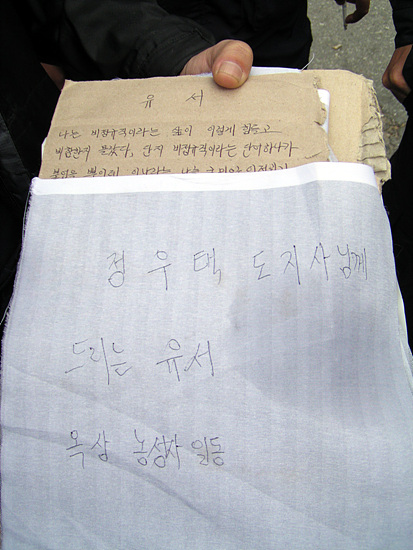 유 서
나는 비정규직이라는 生이 이렇게 힘들고
비참한지 몰랐다. 단지 비정규직이라는 단어하나가
정 우 택 도지사님께
드리는 유서
옥상 농성자 일동